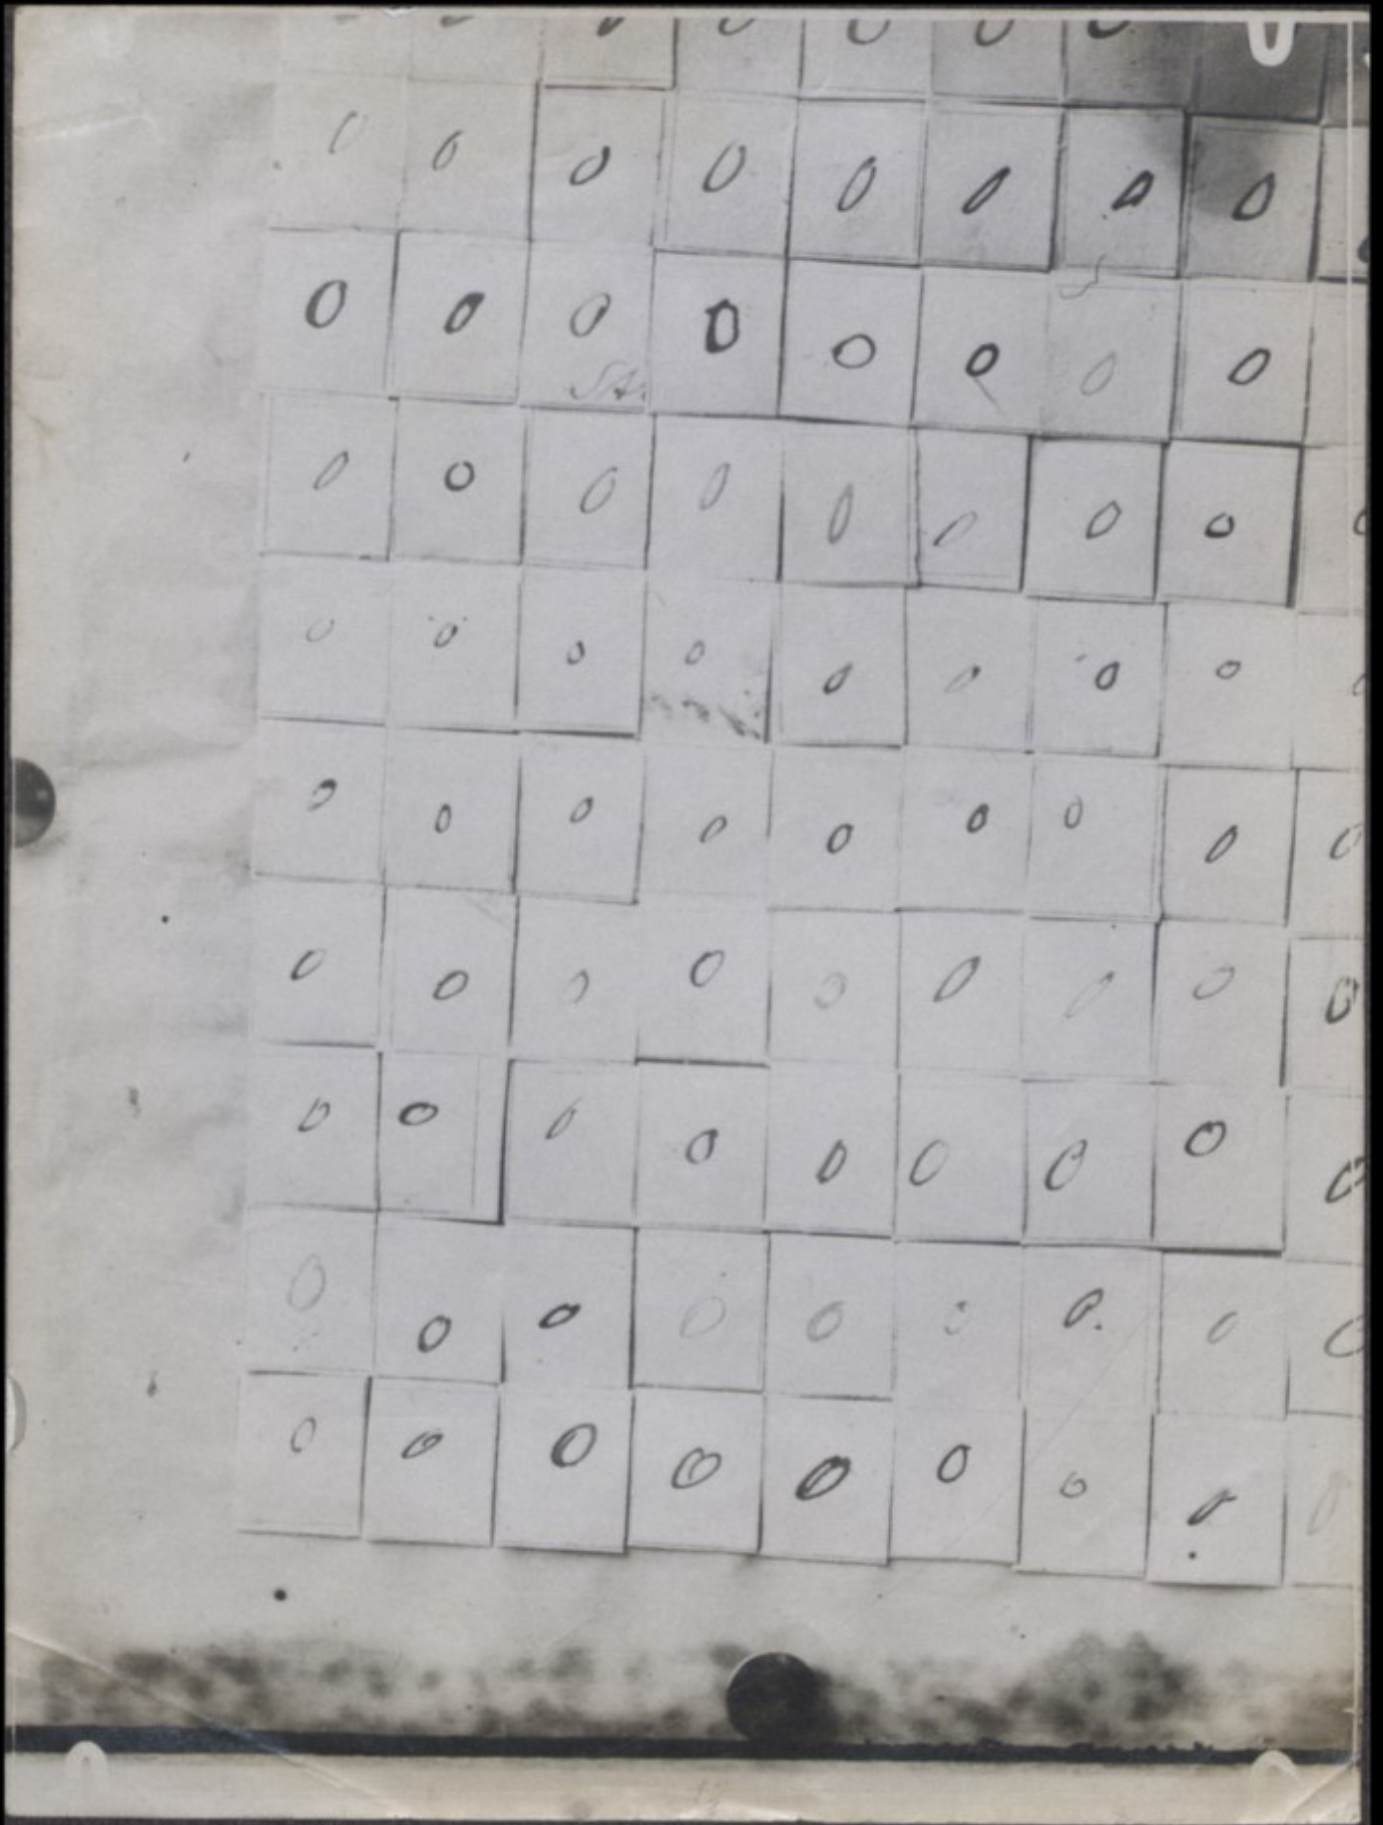 0 0 0 0 0 0 0 0
0 0 0 0 0 0 0 0
0 0 0 0 0 0 0 0
0 0 0 0 0 0 0 0 0
0 0 0 0 0 0 0 0
0 0 0 0 0 0 0 0 0
0 0 0 0 0 0 0 0 0
0 0 0 0 0 0 0 0 0
0 0 0 0 0 0 0 0
0 0 0 0 0 0 0 0 0